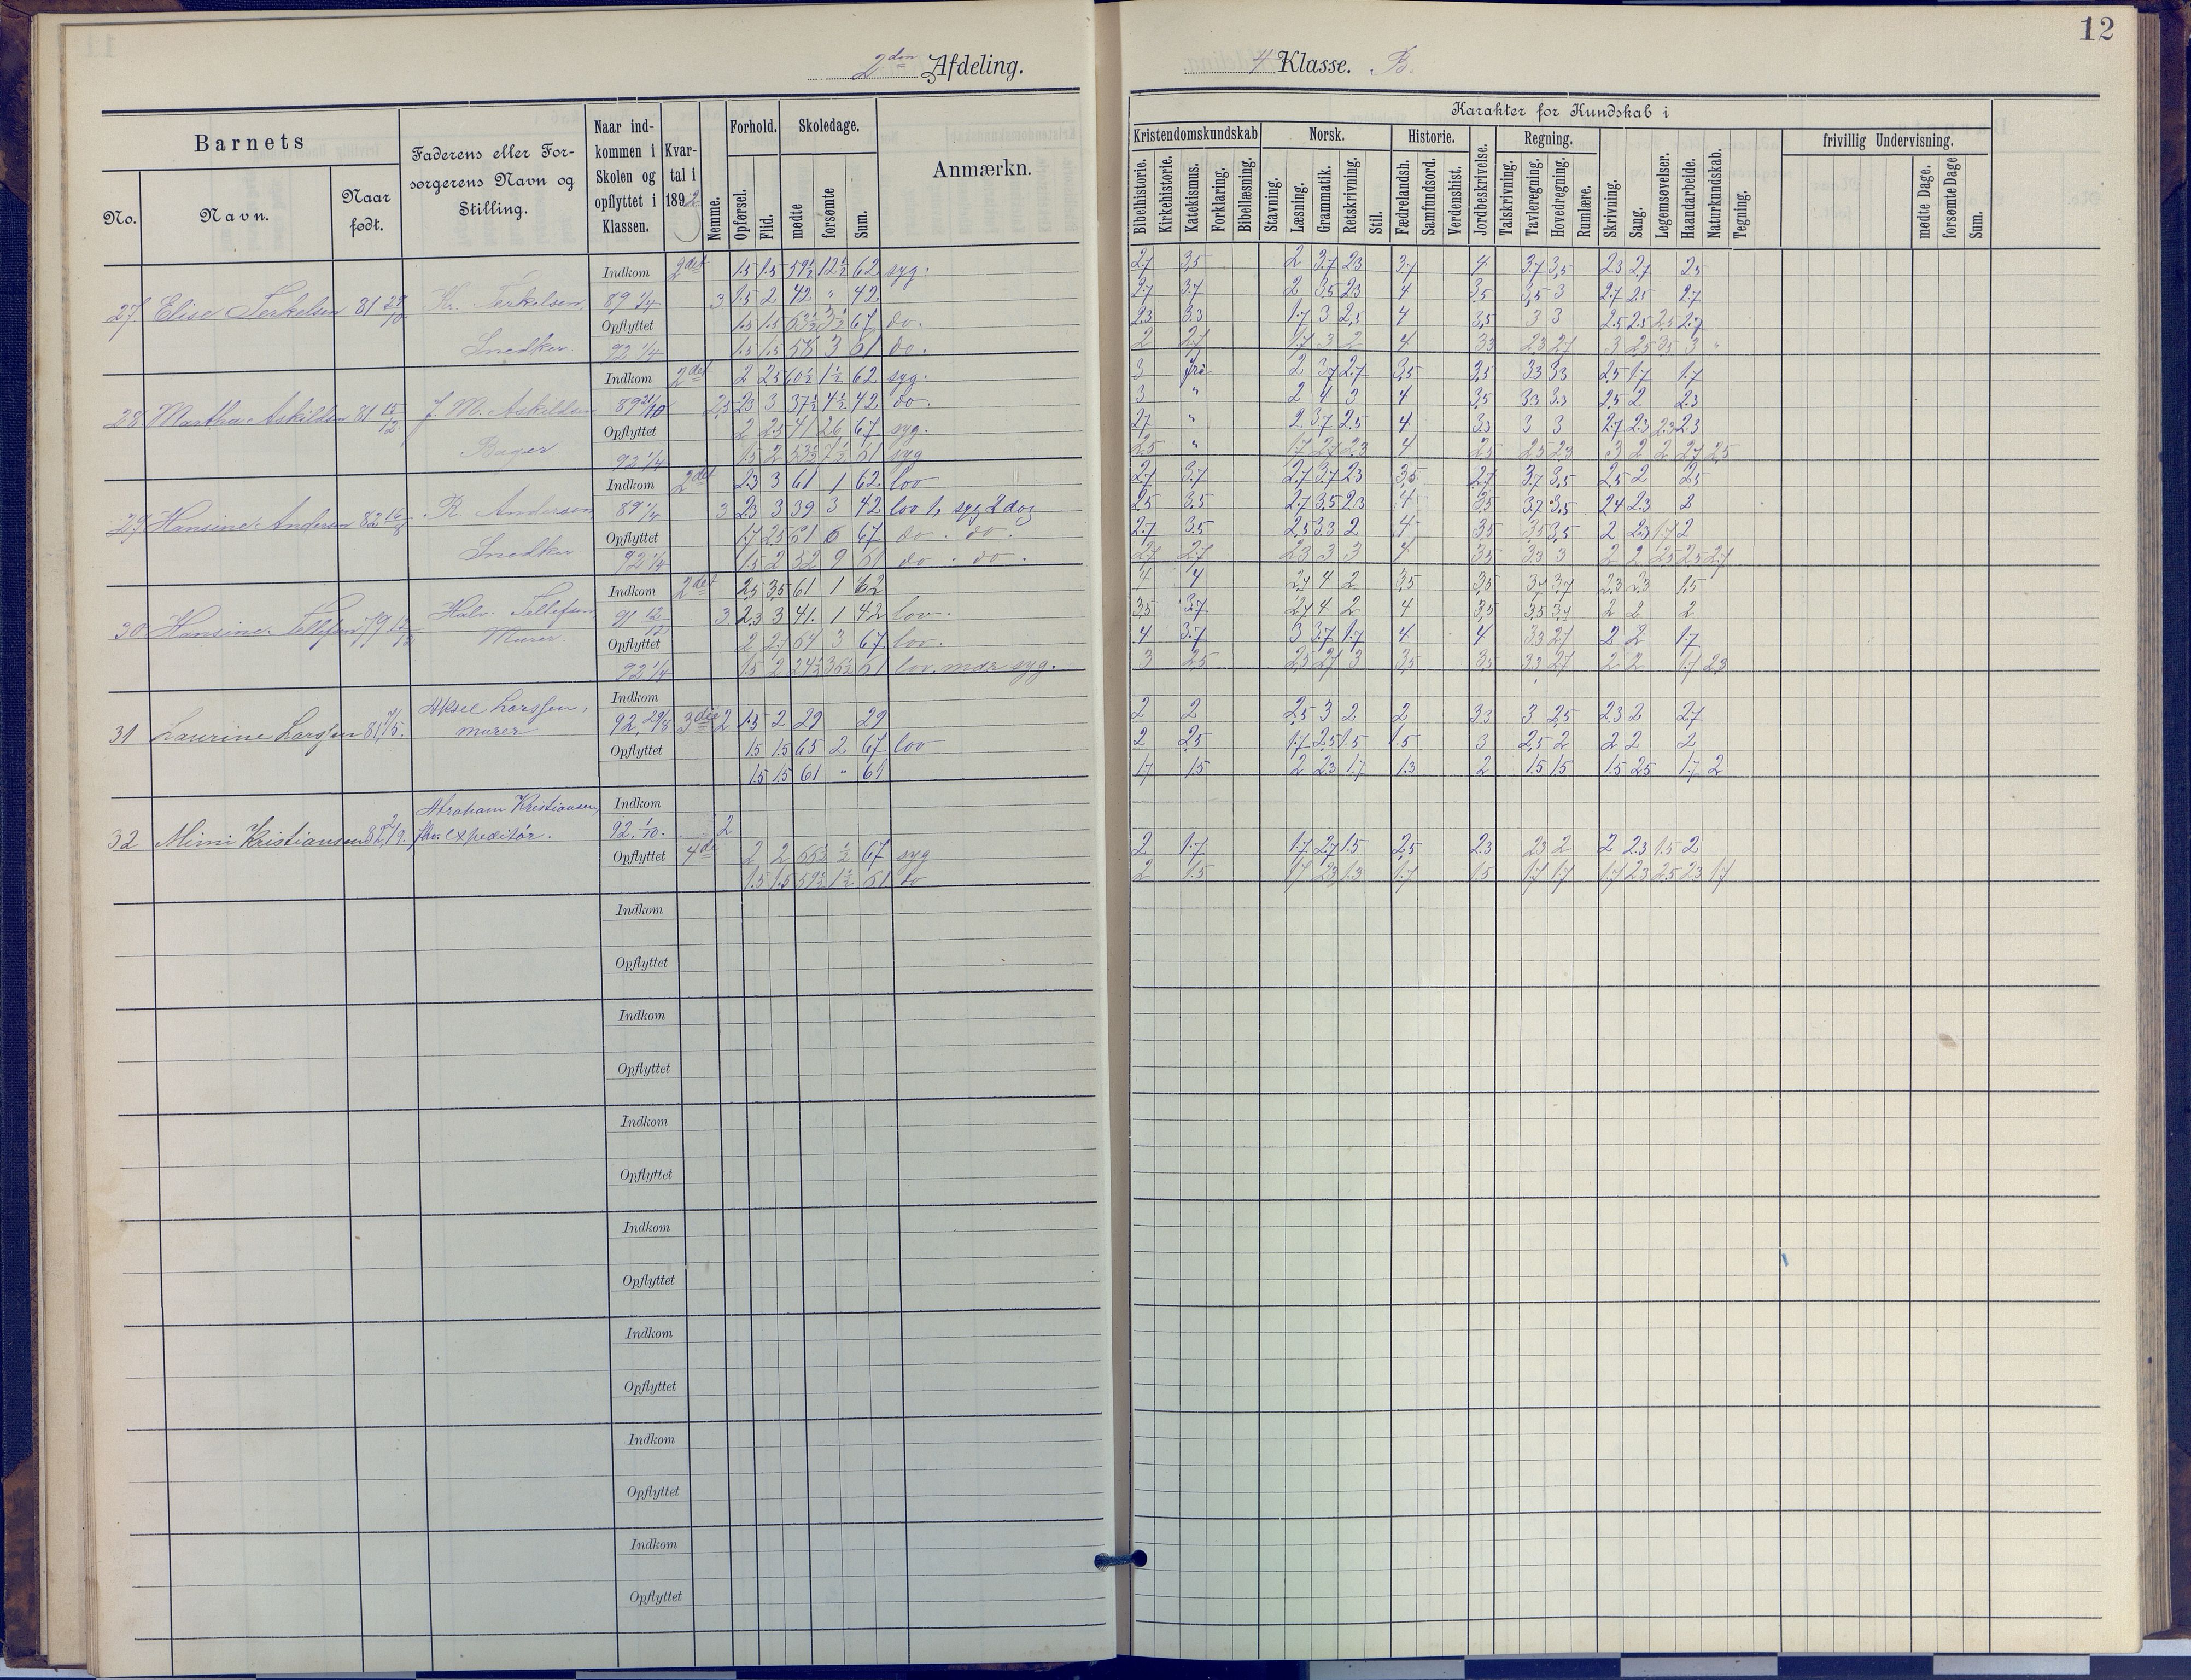 12
2den Afdeling.
4 Klasse. B.
Barnets
No.
Navn.
Naar født.
Faderens eller Forsorgerens Navn og Stilling.
Naar indkommen i Skolen og opflyttet i Klassen.
Kvartal i 1892
Nemme.
Forhold.
Opførsel.
Flid.
Skoledage.
mødte
forsømte
Sum.
Anmærkn.
Karakter for Kundskab i
Kristendomskundskab
Bibelhistorie.
Kirkehistorie.
Katekismus.
Forklaring.
Bibellæsning.
Norsk.
Stavning.
Læsning.
Grammatik.
Retskrivning.
Stil.
Historie.
Fædrelandsh.
Samfundsord.
Verdenshist.
Jordbeskrivelse.
Regning.
Talskrivning.
Tavleregning.
Hovedregning.
Rumlære.
Skrivning.
Sang.
Legemsøvelser.
Haandarbeide.
Naturkundskab.
Tegning.
frivillig Undervisning.
mødte Dage.
forsømte Dage
Sum.
27 Elise Terkelsen 81
Kr. Terkelsen
Snedker.
Indkom 2det 1.5 1.5 59½ 12½ 62 syg. 2.7 3,5 2 3,7 2.3 3.7 4 3.7 3,5 2.3 2.7 2.5
89 1/4 3 1.5 2 42 " 42 2.7 3.7 2 3.5 2.3 4 3.5 3,5 3 2.7 2.5 2.7
Opflyttet 1.5 1.5 63½ 3½ 67 do. 2.3 3.3 1.7 3 2,5 4 3,5 3 3 2.5 2.5 2.5 2.7
92 1/4 1.5 1.5 58 3 61 do. 2 2.7 1.7 3 2 4 3.3 2.3 2.7 3 2.5 3.5 3 "
28 Martha Askildsen 81 15/12
J. M. Askildsen
Bager
Indkom 2det 2 2.5 60½ 1½ 62 syg. 3 fri 2 3.7 2.7 3,5 3,5 3.3 3.3 2.5 1.7 1.7
89 21/10 2,5 2.3 3 37½ 4½ 42 do. 3 " 2 4 3 4 3.5 3.3 3.3 2.5 2 2.3
Opflyttet 2 2.5 41 26 67 syg. 2.7 " 2 3.7 2.5 4 3.3 3 3 2.7 2.3 2.3 2.3
92 1/4 1.5 2 53½ 7½ 61 syg 2.5 " 1.7 2.7 2.3 4 2.5 2.5 2.3 3 2 2 2.7 2.5
29 Hansine Andersen 82 16/8
R. Andersen
Snedker
Indkom 2det 2.3 3 61 1 62 lov 2.7 3.7 2.7 3.7 2.3 3,5 2.7 3.7 3,5 2.5 2 2.5
89 1/4 3 2.3 3 39 3 42 lov 1, syg 2 dag 2.5 3.5 2.7 3.5 2.3 4 3.5 3.7 3.5 2.4 2.3 2
Opflyttet 1.7 2.5 61 6 67 do. do. 2.7 3.5 2.5 3.3 2 4 3.5 3.5 3,5 2 2.3 1.7 2
92 1/4 1.5 2 52 9 61 do. do. 2.7 2.7 2.3 3 3 4 3.5 3.3 3 2 2 2.5 2.5 2.7
30 Hansine Tellefsen 79
Halv. Tellefsen
Murer.
Indkom 2det 2.5 3.5 61 1 62 4 4 2.7 4 2 3,5 3.5 3.7 3.7 2.3 2.3 1.5
91 12/12 3 2.3 3 41. 1 42 lov. 3.5 3.7 2.7 4 2 4 3,5 3.5 3.7 2 2 2
Opflyttet 2 2.7 64 3 67 lov. 4 3.7 3 3.7 1.7 4 4 3.3 2.7 2 2 1.7
92 1/4 1.5 2 24½ 36½ 61 lov. mdr syg. 3 2.5 2.5 2.7 3 3.5 3.5 3.3 2.7 2 2 1.7 2.3
31 Laurine Larssen 81
Aksel Larssen,
murer
Indkom
92, 29/8 3die 2 1.5 2 29 29 2 2 2,5 3 2 2 3.3 3 2.5 2.3 2 2.7
Opflyttet 1.5 1.5 65 2 67 lov 2 2.5 1.7 2.5 1.5 1.5 3 2.5 2 2 2 2
1.5 1.5 61 " 61 1.7 1.5 2 2.3 1.7 1.3 2 1.5 1.5 1.5 2.5 1.7 2
32 Mimi Kristiansen 82, 2/9.
Abraham Kristiansen,
fhv. expeditör.
Indkom
92, 1/10. 2
Opflyttet 4de 2 2 66½ ½ 67 syg 2 1.7 1.7 2.7 1.5 2.5 2.3 2.3 2 2 2.3 1.5 2
1.5 1.5 59½ 1½ 61 do 2 1.5 1.7 2.3 1.3 1.7 1.5 1.7 1.7 1.7 2.3 2.5 2.3 1.7
Indkom
Opflyttet
Indkom
Opflyttet
Indkom
Opflyttet
Indkom
Opflyttet
Indkom
Opflyttet
Indkom
Opflyttet
Indkom
Opflyttet